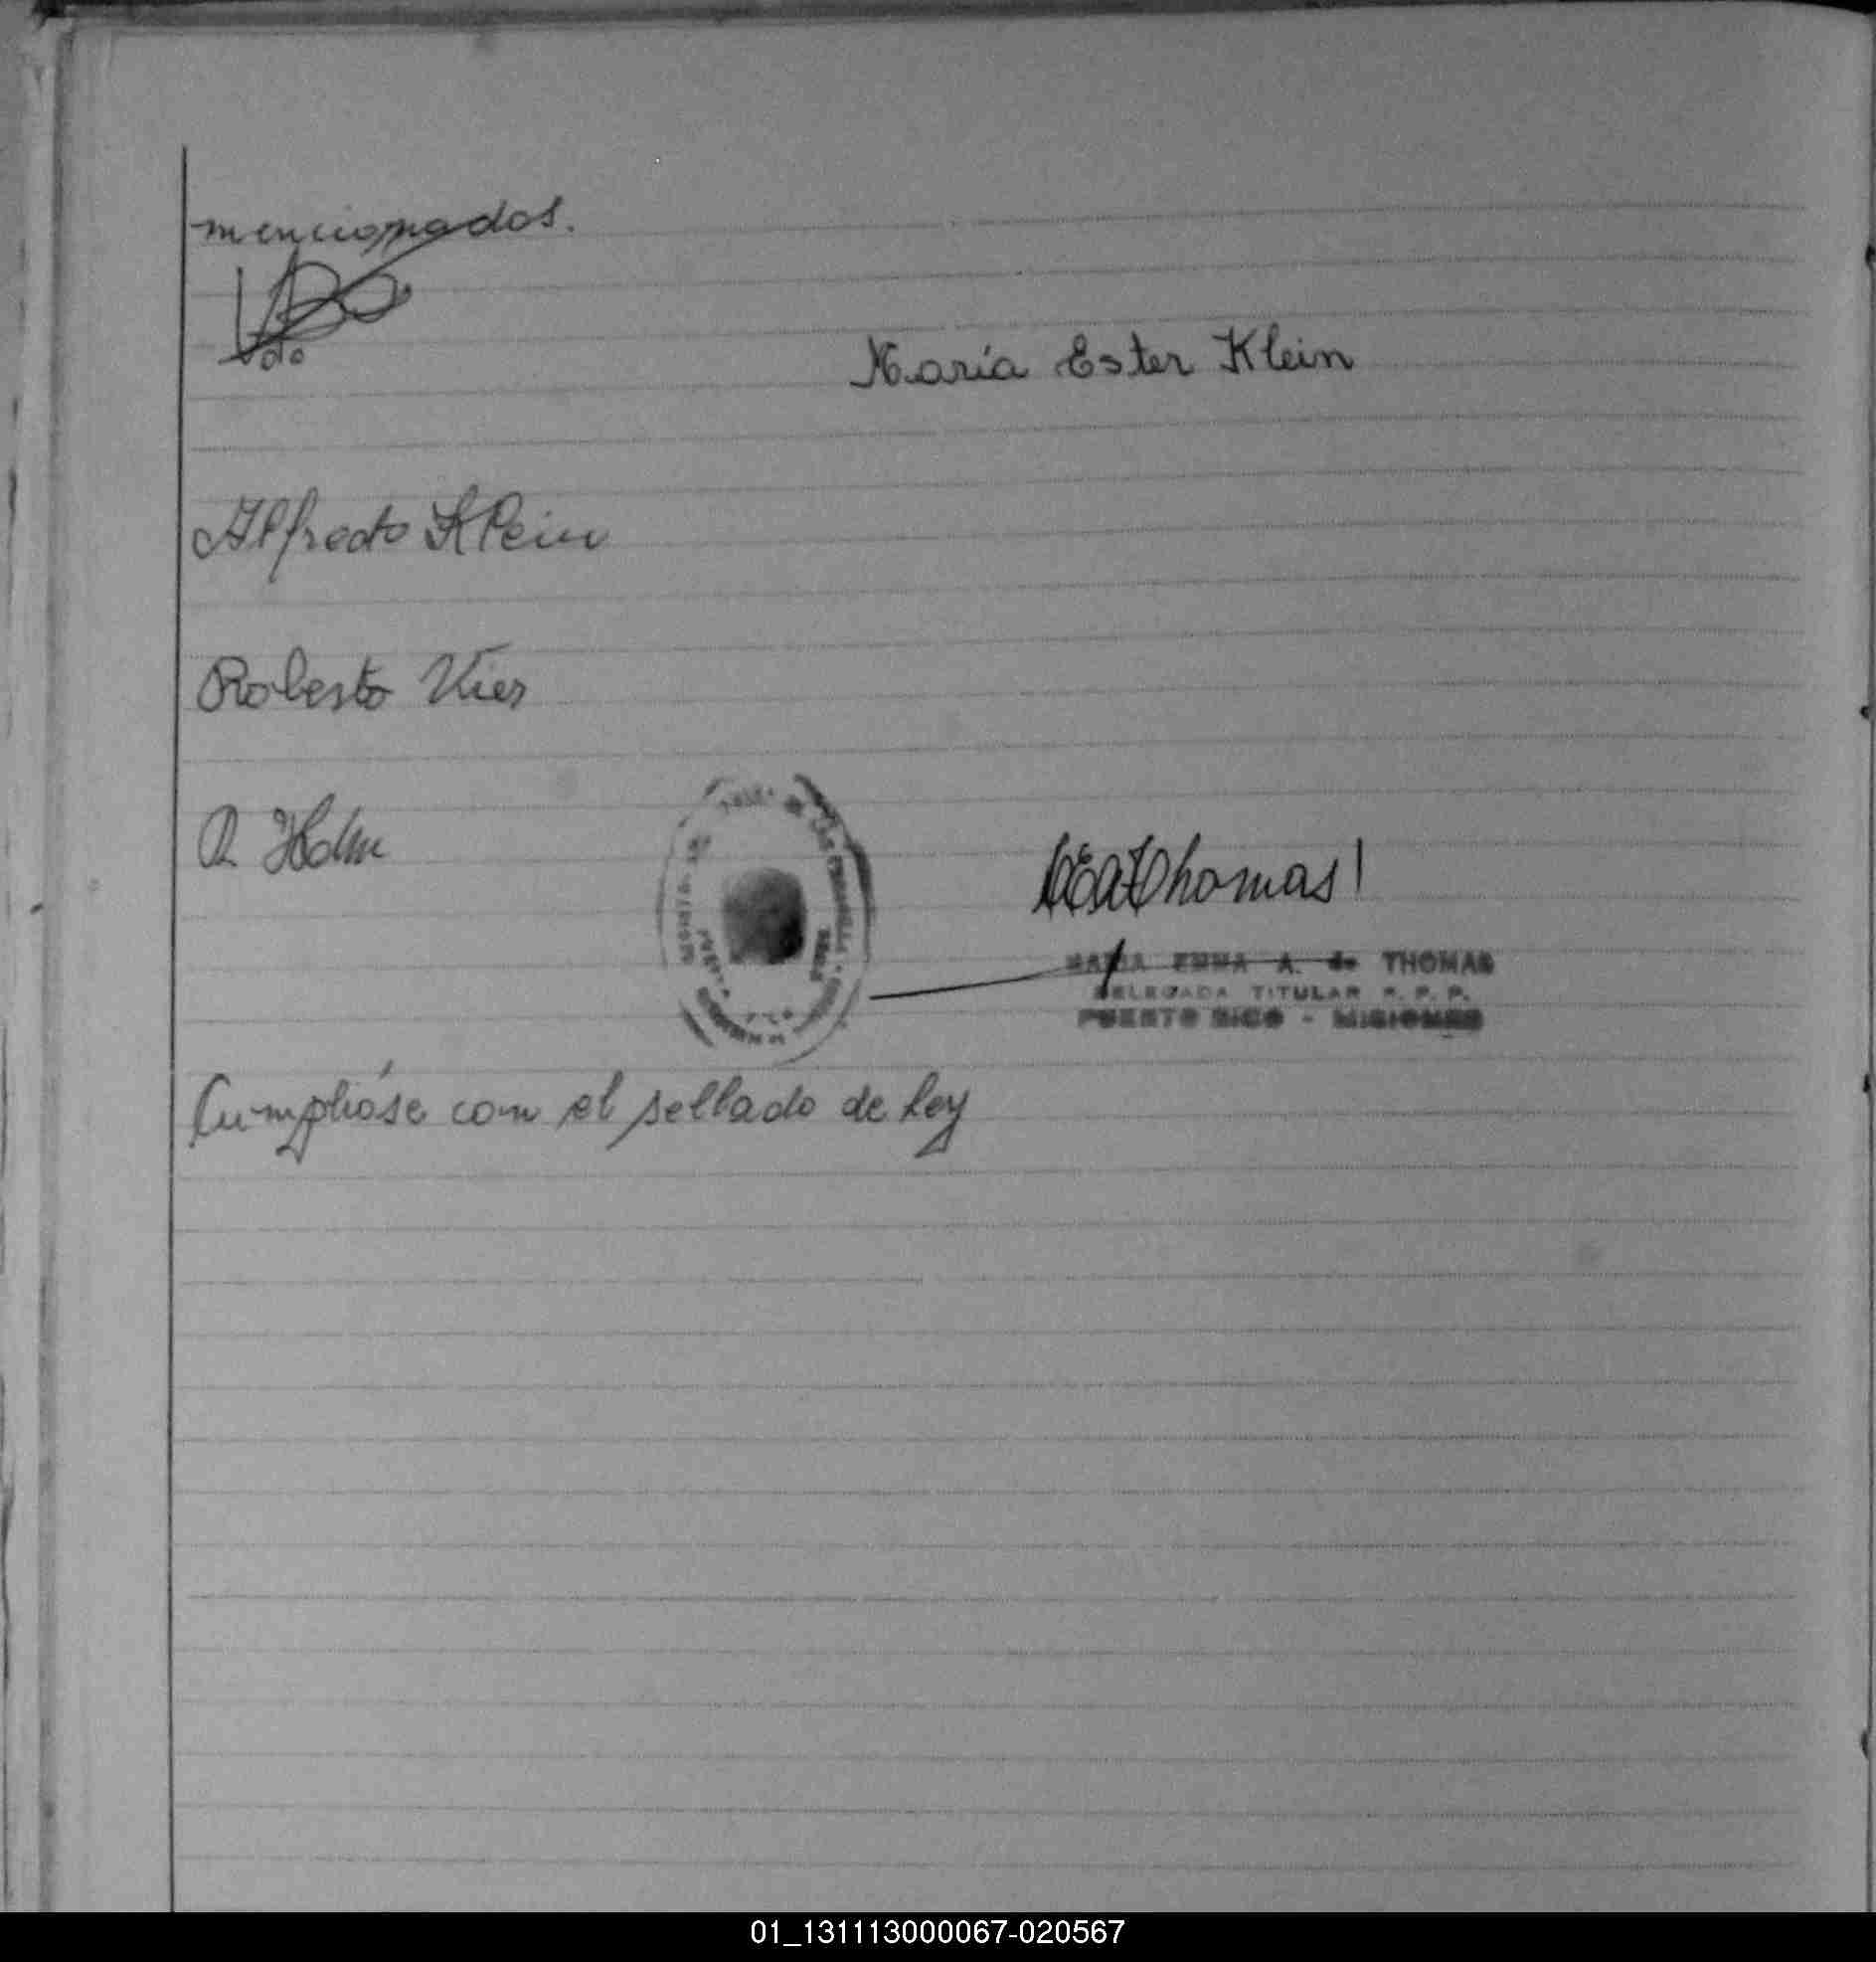 mencionados.
María Ester Klein
Alfredo Klein
Roberto Vier
MEAdeThomas
MARIA EMMA A. de THOMAS
DELEGADA TITULAR R. P. P.
PUERTO RICO - MISIONES
Cumplióse con el sellado de ley
01_131113000067-020567